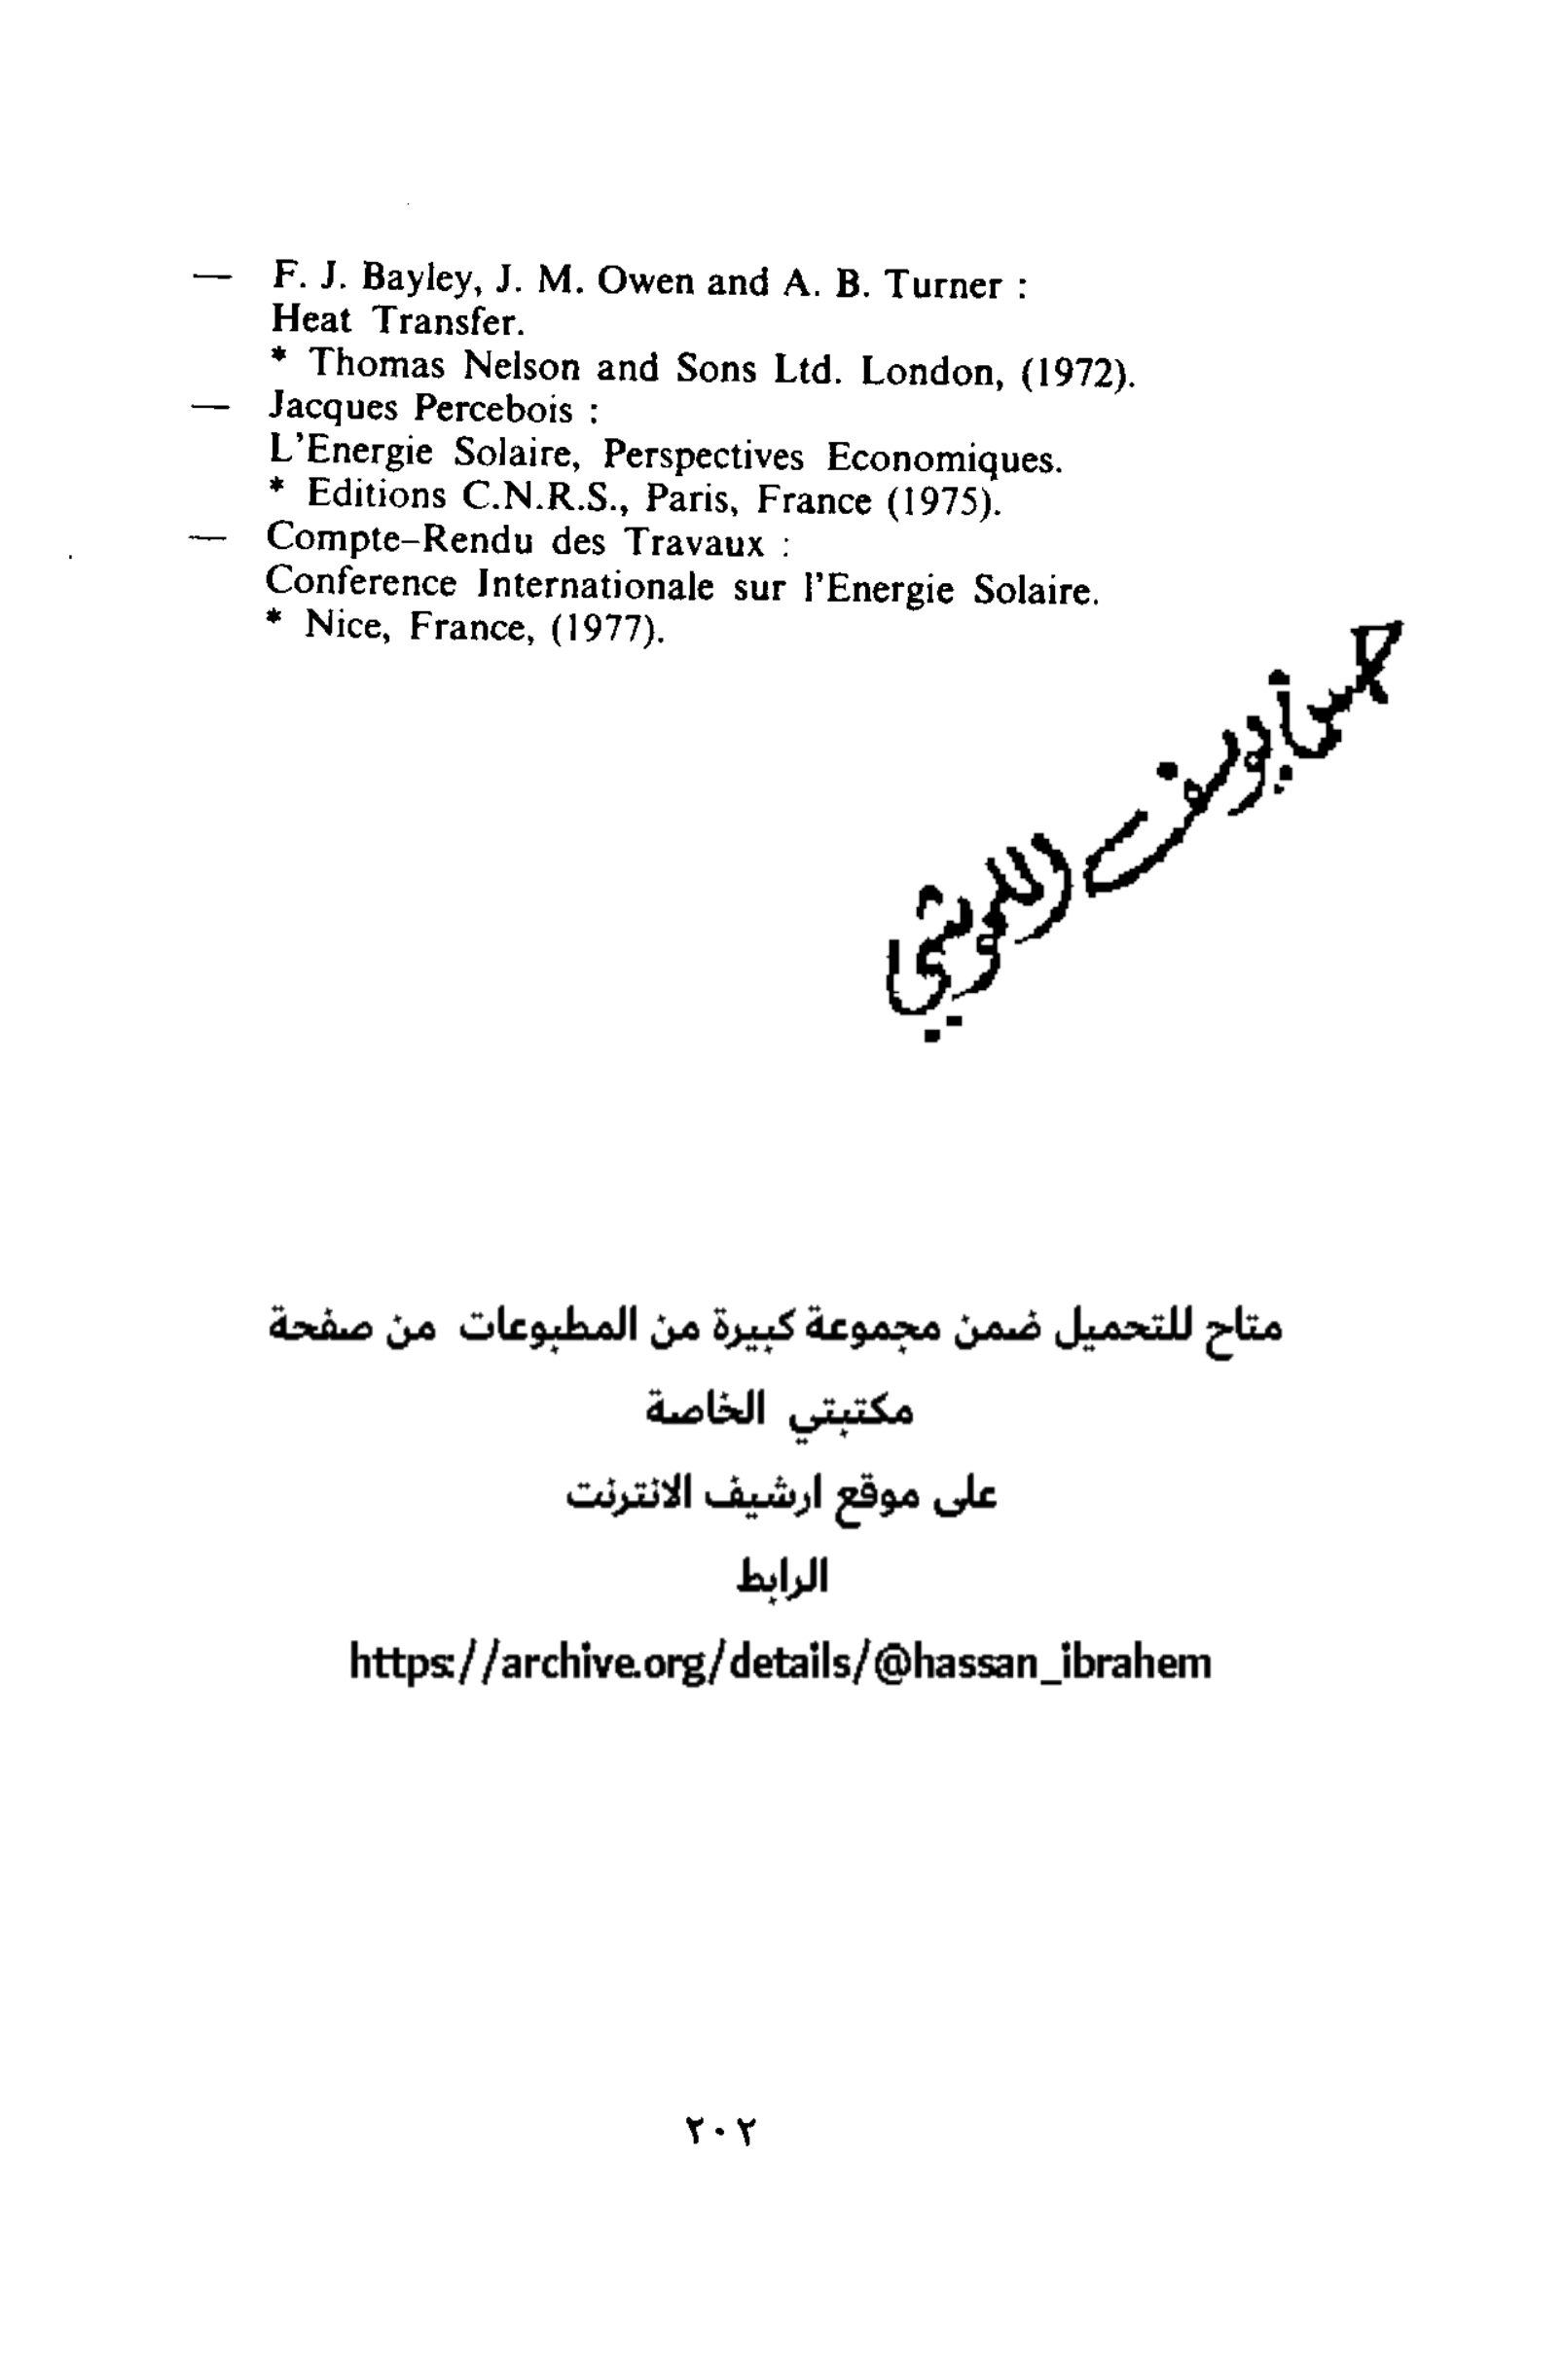 — F. J. Bayley, J. M. Owen and A. B. Turner :
Heat Transfer.
* Thomas Nelson and Sons Ltd. London, (1972).
— Jacques Percebois :
L'Energie Solaire, Perspectives Economiques.
* Editions C.N.R.S., Paris, France (1975).
— Compte–Rendu des Travaux :
Conference Internationale sur l'Energie Solaire.
* Nice, France, (1977).
متاح للتحميل ضمن مجموعة كبيرة من المطبوعات من صفحة
مكتبتي الخاصة
على موقع ارشيف الانترنت
الرابط
https://archive.org/details/@hassan_ibrahem
٢٠٢